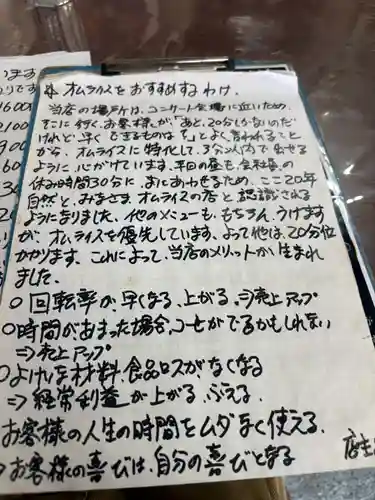 います
1600
2100
900
☆ オムライスをおすすめするわけ。
当店の場所は、コンサート会場に近いため、
そこに行く、お客様が、「あと、20分しかないのだ
けれど、早く できるものは?」と よく 言われること
から、オムライスに特化して、3分以内で 出せる
ように 心がけています。平日の昼も、会社員の
休み時間30分に、まにあわせるため、ここ20年
自然と、みなさま オムライスの店と 認識される
ようになりました。他のメニューも、もちろん、うけます
が、オムライスを優先しています。よって他は、20分位
かかります。これによって、当店のメリットが生まれ
ました。
○回転率が、早くなる、上がる。⇒売上アップ
○時間があまった場合、コーヒーがでるかもしれない
⇒売上アップ
○よけいな材料、食品ロスがなくなる
⇒経常利益が上がる、ふえる。
お客様の人生の時間をムダなく使える。
お客様の喜びは、自分の喜びとなる
店主